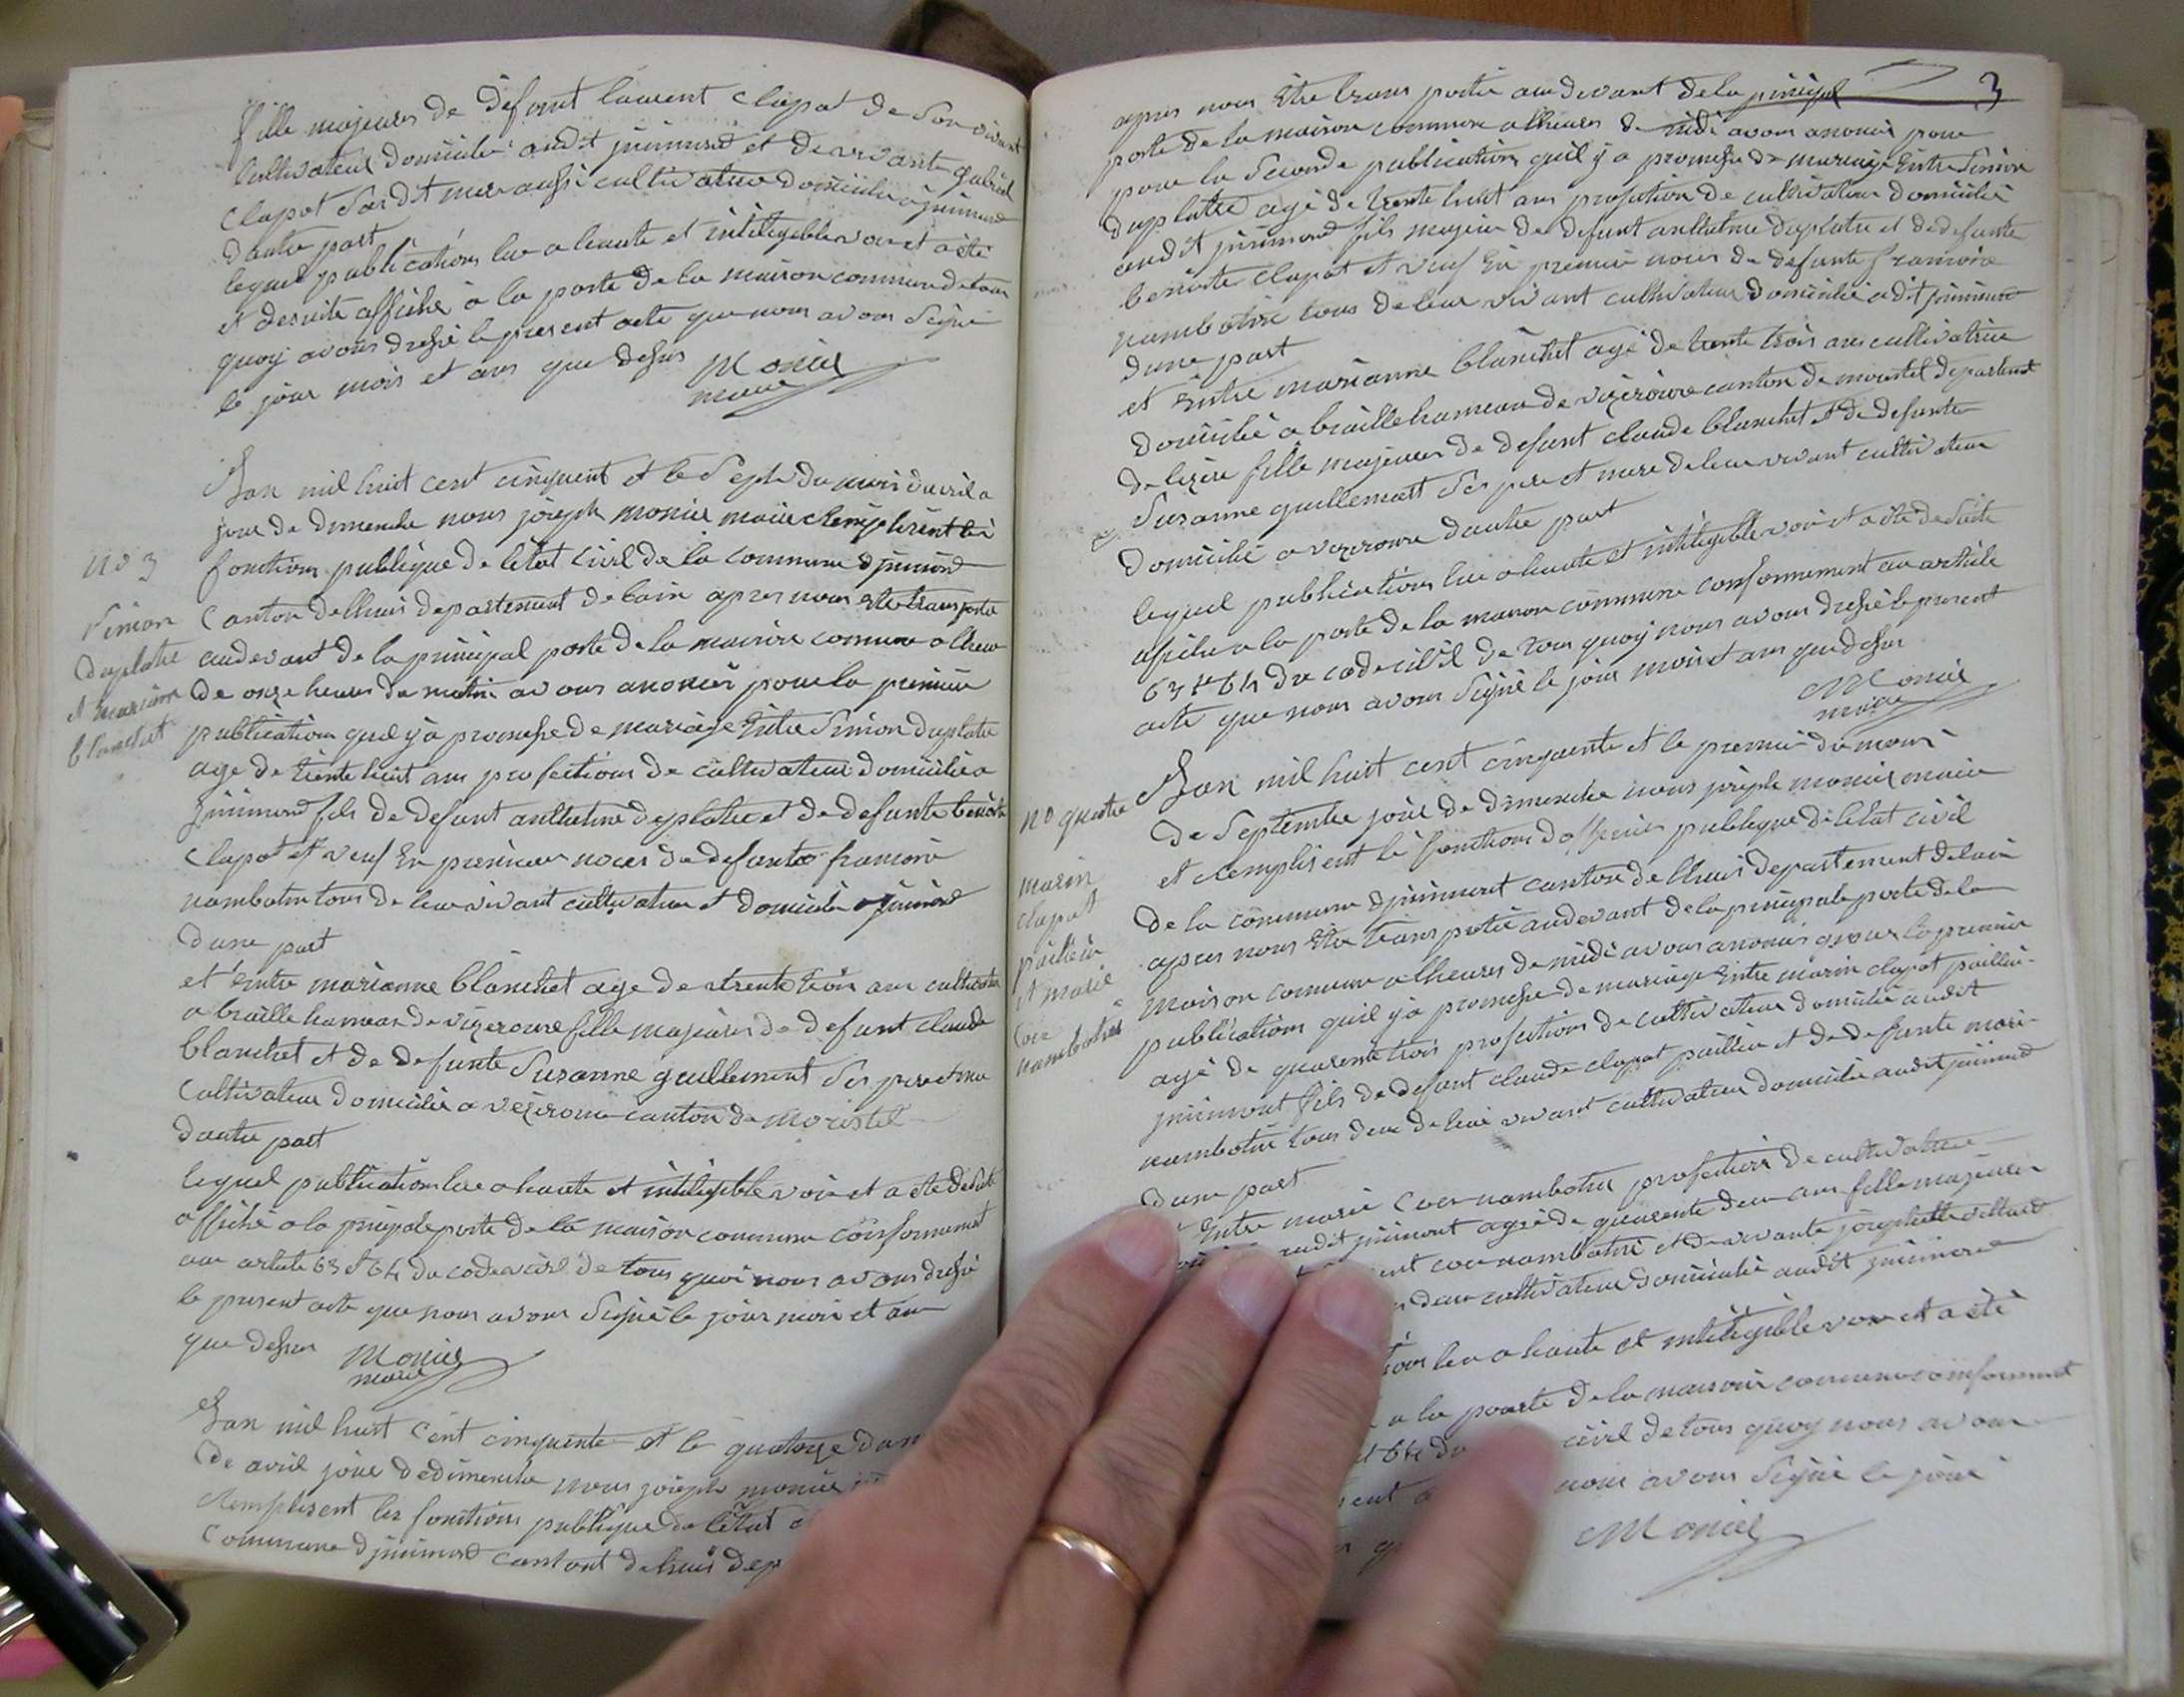 fille majeure de defunt laurent clapot de son vivant
cultivateur domicilié audit jnnimont et de vivante
clapot mere aussi cultivatrice domicilié a jnnimont
d'autre part
lequel publications lue a haute et intelligible voix et a été
et desuite affiché a la porte de la maison commune de tous
quoy avons dressé le present acte que nous avons signé
le jour mois et ans que dessus Monier
maire
Lan mil huit cent cinquent et le Sept du mois davril a
jour de dimenche nous joseph monier maire remplisent les
no 3
fonctions publique de létat civil de la commune djnnimond
Canton de lhuis departement de lain apres nous etre transporté
Simion
duplatre
et marianne
blanchet
audevant de la principal porte de la maison comune a lheure
de onze heures du matin avons anoncés pour la premiere
publication quil y a promesse de mariage Entre Simion duplatre
age de trente huit ans profections de cultivateur domicilié a
jnnimond fils de defunt anthelme duplatre et de defunte benoite
Clapot et veuf En premiere noces de defunte framoise
nambotin tous de leur vivant cultivateur et domicilié a jnnimond
dune part
et Entre marianne blanchet age de trente trois ans cultivatrice
a braille hameau de vezeronce fille majeure de defunt claude
blanchet et de defunte Suzanne guillemont Ses pere et mere
Cultivateur domicilié a vezeronce canton de morestel
dautre part
lequel publication lue a haute et intiligible voix et a ete de suite
affiché a la pricipale porte de la maison commune conformement
au article 63 et 64 du code civil de tous quoi nous avons dressé
le present acte que nous avons Signé le jour mois et an
que dessus Monier
maire
Lan mil huit cent cinquente et le quatorze du
de avril jour de dimenche nous joseph monier
Remplisent les fonctions publique de létat
Commune djnnimond cantont de lhuis dep
3
apres nous être trans portée audevant de la principal
porte de la maison commune a lheures de midi avons anoncés pour
pour la Seconde publication quil y a promesse de mariage Entre Simion
duplatre agé de trente huit ans profection de cultivateur domicilié
audit jnnimond fils majeur de defunt anthelme duplatre et de defunte
benoite clapot et veuf En premiere noces de defunte framoise
nambotin tous de leur vivant cultivateur domicilié audit jnnimond
dune part
et Entre marianne blanchet agé de trente trois ans cultivatrice
domicilié a braille hameau de vezeronce canton de morestel departement
de lizère fille majeure de defunt claude blanchet et de defunte
Suzanne guillemont Ses pere et mere de leur vivant cultivateur
domicilié a vezeronce dautre part
lequel publications lue a haute et intiligible voix et a été de suite
afiché a la porte de la maison commune conformement au article
63 et 64 du code civil de tous quoy nous avons dressé le present
acte que nous avons Signé le jour mois et ans que dessus
Monier
maire
Lan mil huit cent cinquente et le premier du mois
no quatre
de Septembre jour de dimenche nous joseph monier maire
et remplisent les fonctions dofficier publique de létat civil
marin
clapot
paillier
et marie
nambotin
de la commune djnnimont canton de lhuis departement de lain
apres nous être transportée audevant de la principale porte de la
maison comune a lheures de midi avons anoncés pour la premiere
publications quil y a promesse de mariage Entre marin clapot paillier
agé de quarente trois profections de cultivateur domicilié audit
jnnimont fils de defunt claude clapot paillier et de defunte marie
nambotin tous deux de leur vivant cultivateur domicilié audit jnnimond
dune part
Entre marie nambotin profections de cultivatrice
audit jnnimont agé de quarente deux ans fille majeure
nambotin et de vivante josephette
deux cultivateur domicilié audit jnnimond
lue a haute et intiligible voix et a été
a la porte de la maison commune conformement
et 64 du civil de tous quoy nous avons
nous avons Signé le jour
Monier